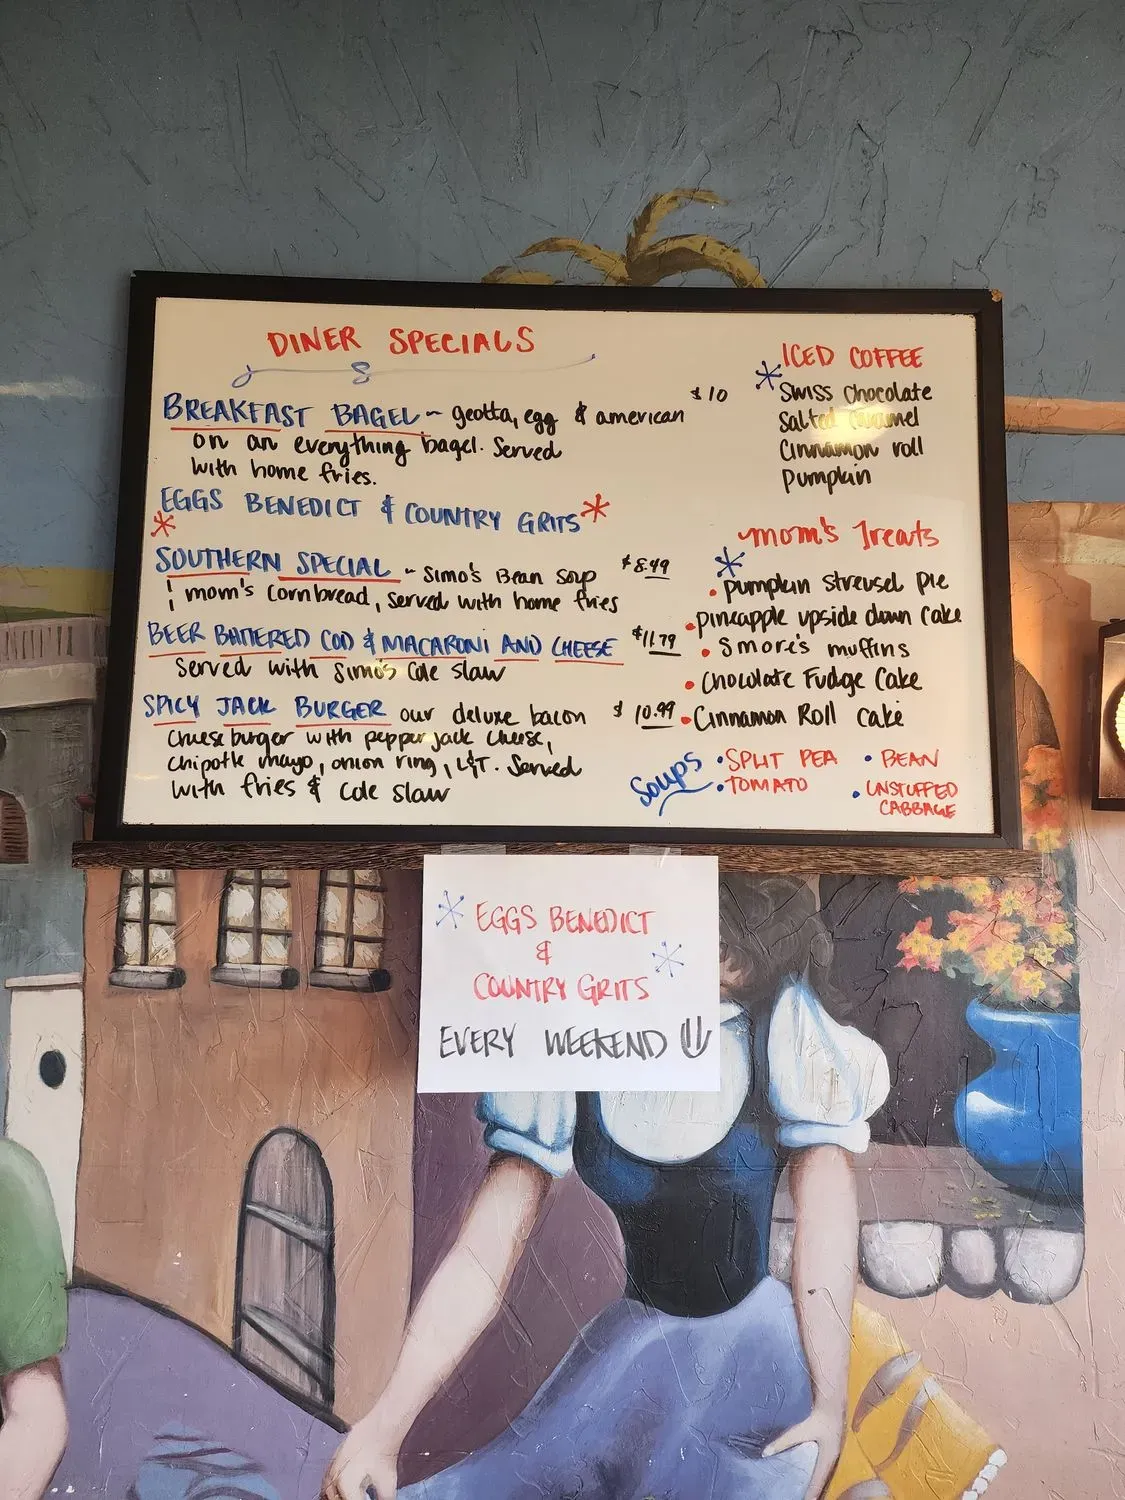 DINER SPECIALS
BREAKFAST BAGEL ~ geotta, egg & american $10
on an everything bagel. Served
with home fries.
EGGS BENEDICT & COUNTRY GRITS
SOUTHERN SPECIAL ~ Simo's Bean Soup $8.49
& mom's Cornbread, served with home fries
BEER BATTERED COD & MACARONI AND CHEESE $11.79
Served with Simo's Cole slaw
SPICY JACK BURGER our deluxe bacon $10.99
Cheeseburger with pepper jack cheese,
Chipotle mayo, onion ring, L&T. Served
with fries & Cole slaw
ICED COFFEE
Swiss Chocolate
Salted Caramel
Cinnamon roll
Pumpkin
mom's Treats
• pumpkin streusel pie
• pineapple upside down Cake
• Smore's muffins
• Chocolate Fudge Cake
• Cinnamon Roll Cake
Soups • SPLIT PEA • BEAN
• TOMATO • UNSTUFFED
CABBAGE
EGGS BENEDICT
&
COUNTRY GRITS
EVERY WEEKEND